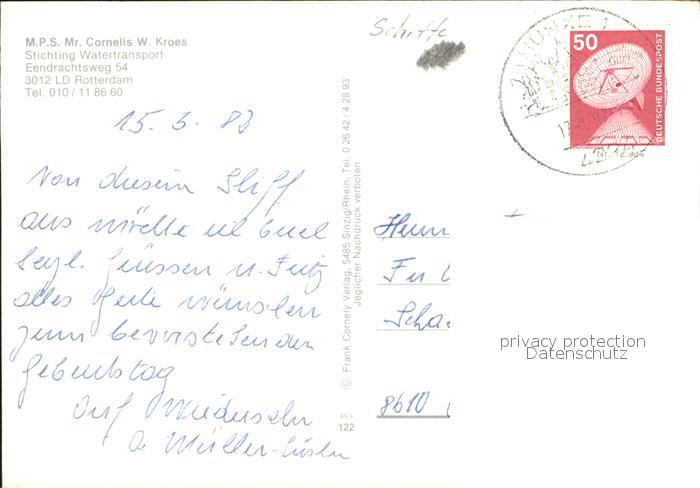 M.P.S. Mr. Cornelis W. Kroes
Stichting Watertransport
Eendrachtsweg 54
3012 LD Rotterdam
Tel. 010 / 11 86 60
Schiffe
50
DEUTSCHE BUNDESPOST
HÜNXE 1
15. 3. 83
Von diesem Schiff
aus möchte ich Euch
herzl. Grüssen u. Fritz
alles Gute wünschen
zum bevorstehenden
Geburtstag
Auf Wiedersehn
A. Müller-
© Frank Cornely Verlag, 5485 Sinzig/Rhein, Tel. 0 26 42 / 4 28 93
Jeglicher Nachdruck verboten
122
Herrn
Fri
Scha
8610
privacy protection
Datenschutz